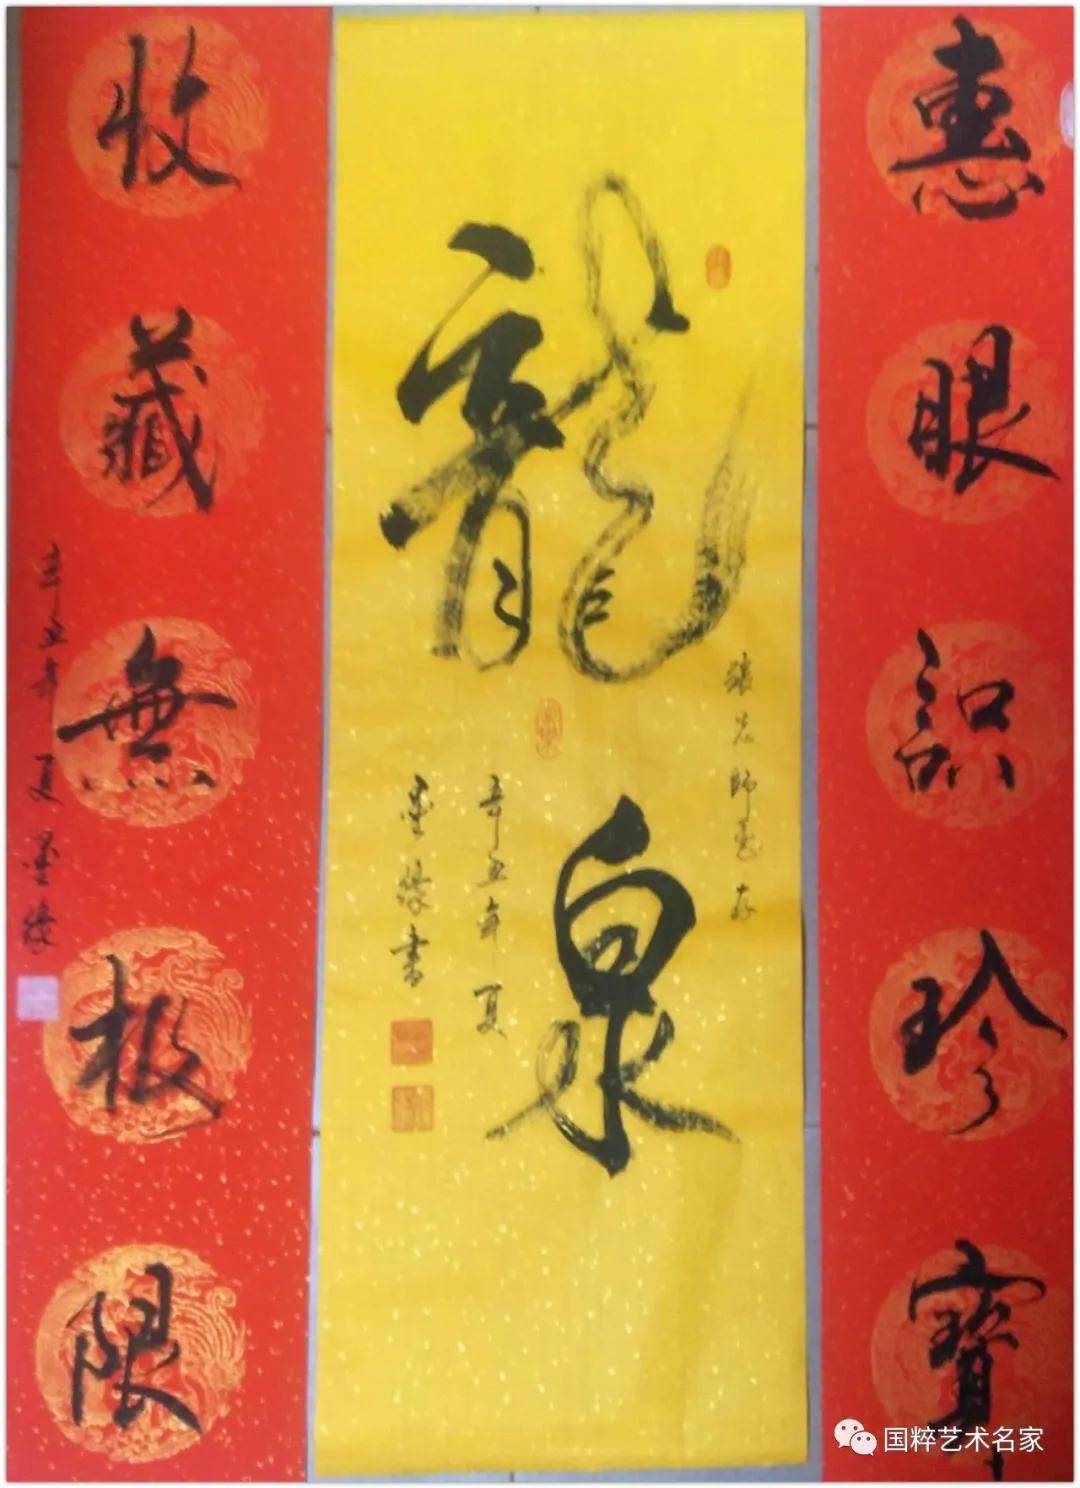 惠眼識珍寶
龍泉
張先師惠存
辛丑年夏
墨緣書
收藏無極限
辛丑年夏墨緣
国粹艺术名家